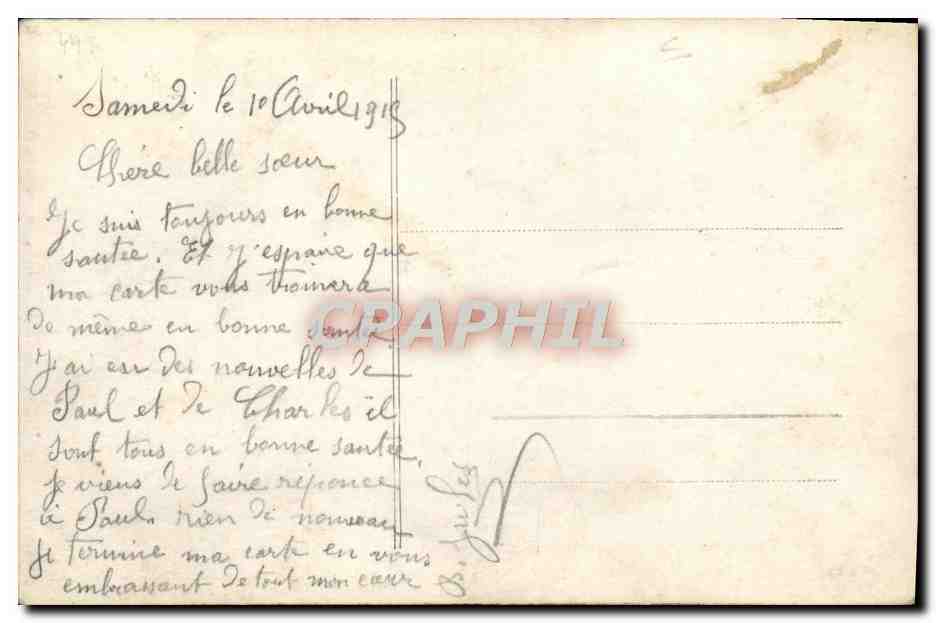 Samedi le 10 Avril 1915
Chère belle sœur
Je suis toujours en bonne
santée. Et j'espaire que
ma carte vous troinera
de même en bonne santée
J'ai eu des nouvelles de
Paul et de Charles il
sont tous en bonne santée,
je viens de faire réponce
à Paul. rien de nouveau
Je termine ma carte en vous
embrassant de tout mon cœur
Jules
CPAPHIL